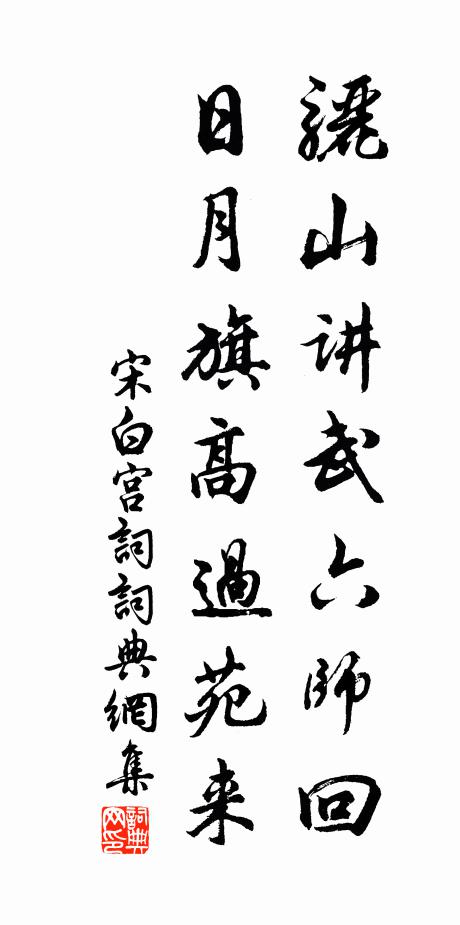 骊山讲武六師回
日月旗高過苑来
宋白宫詞詞典網集
詞典
网印